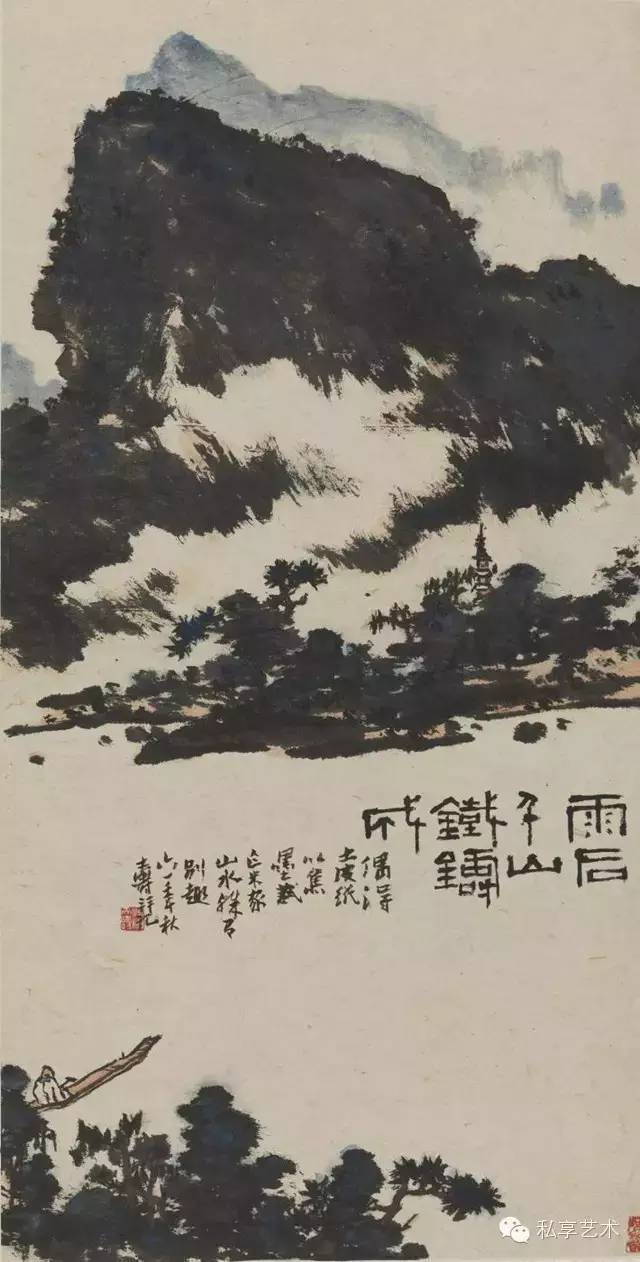 雨后
千山
鐵鑄
成
偶得
土皮紙
以焦
墨戲
作米家
山水殊有
別趣
六一年秋
壽
私享艺术